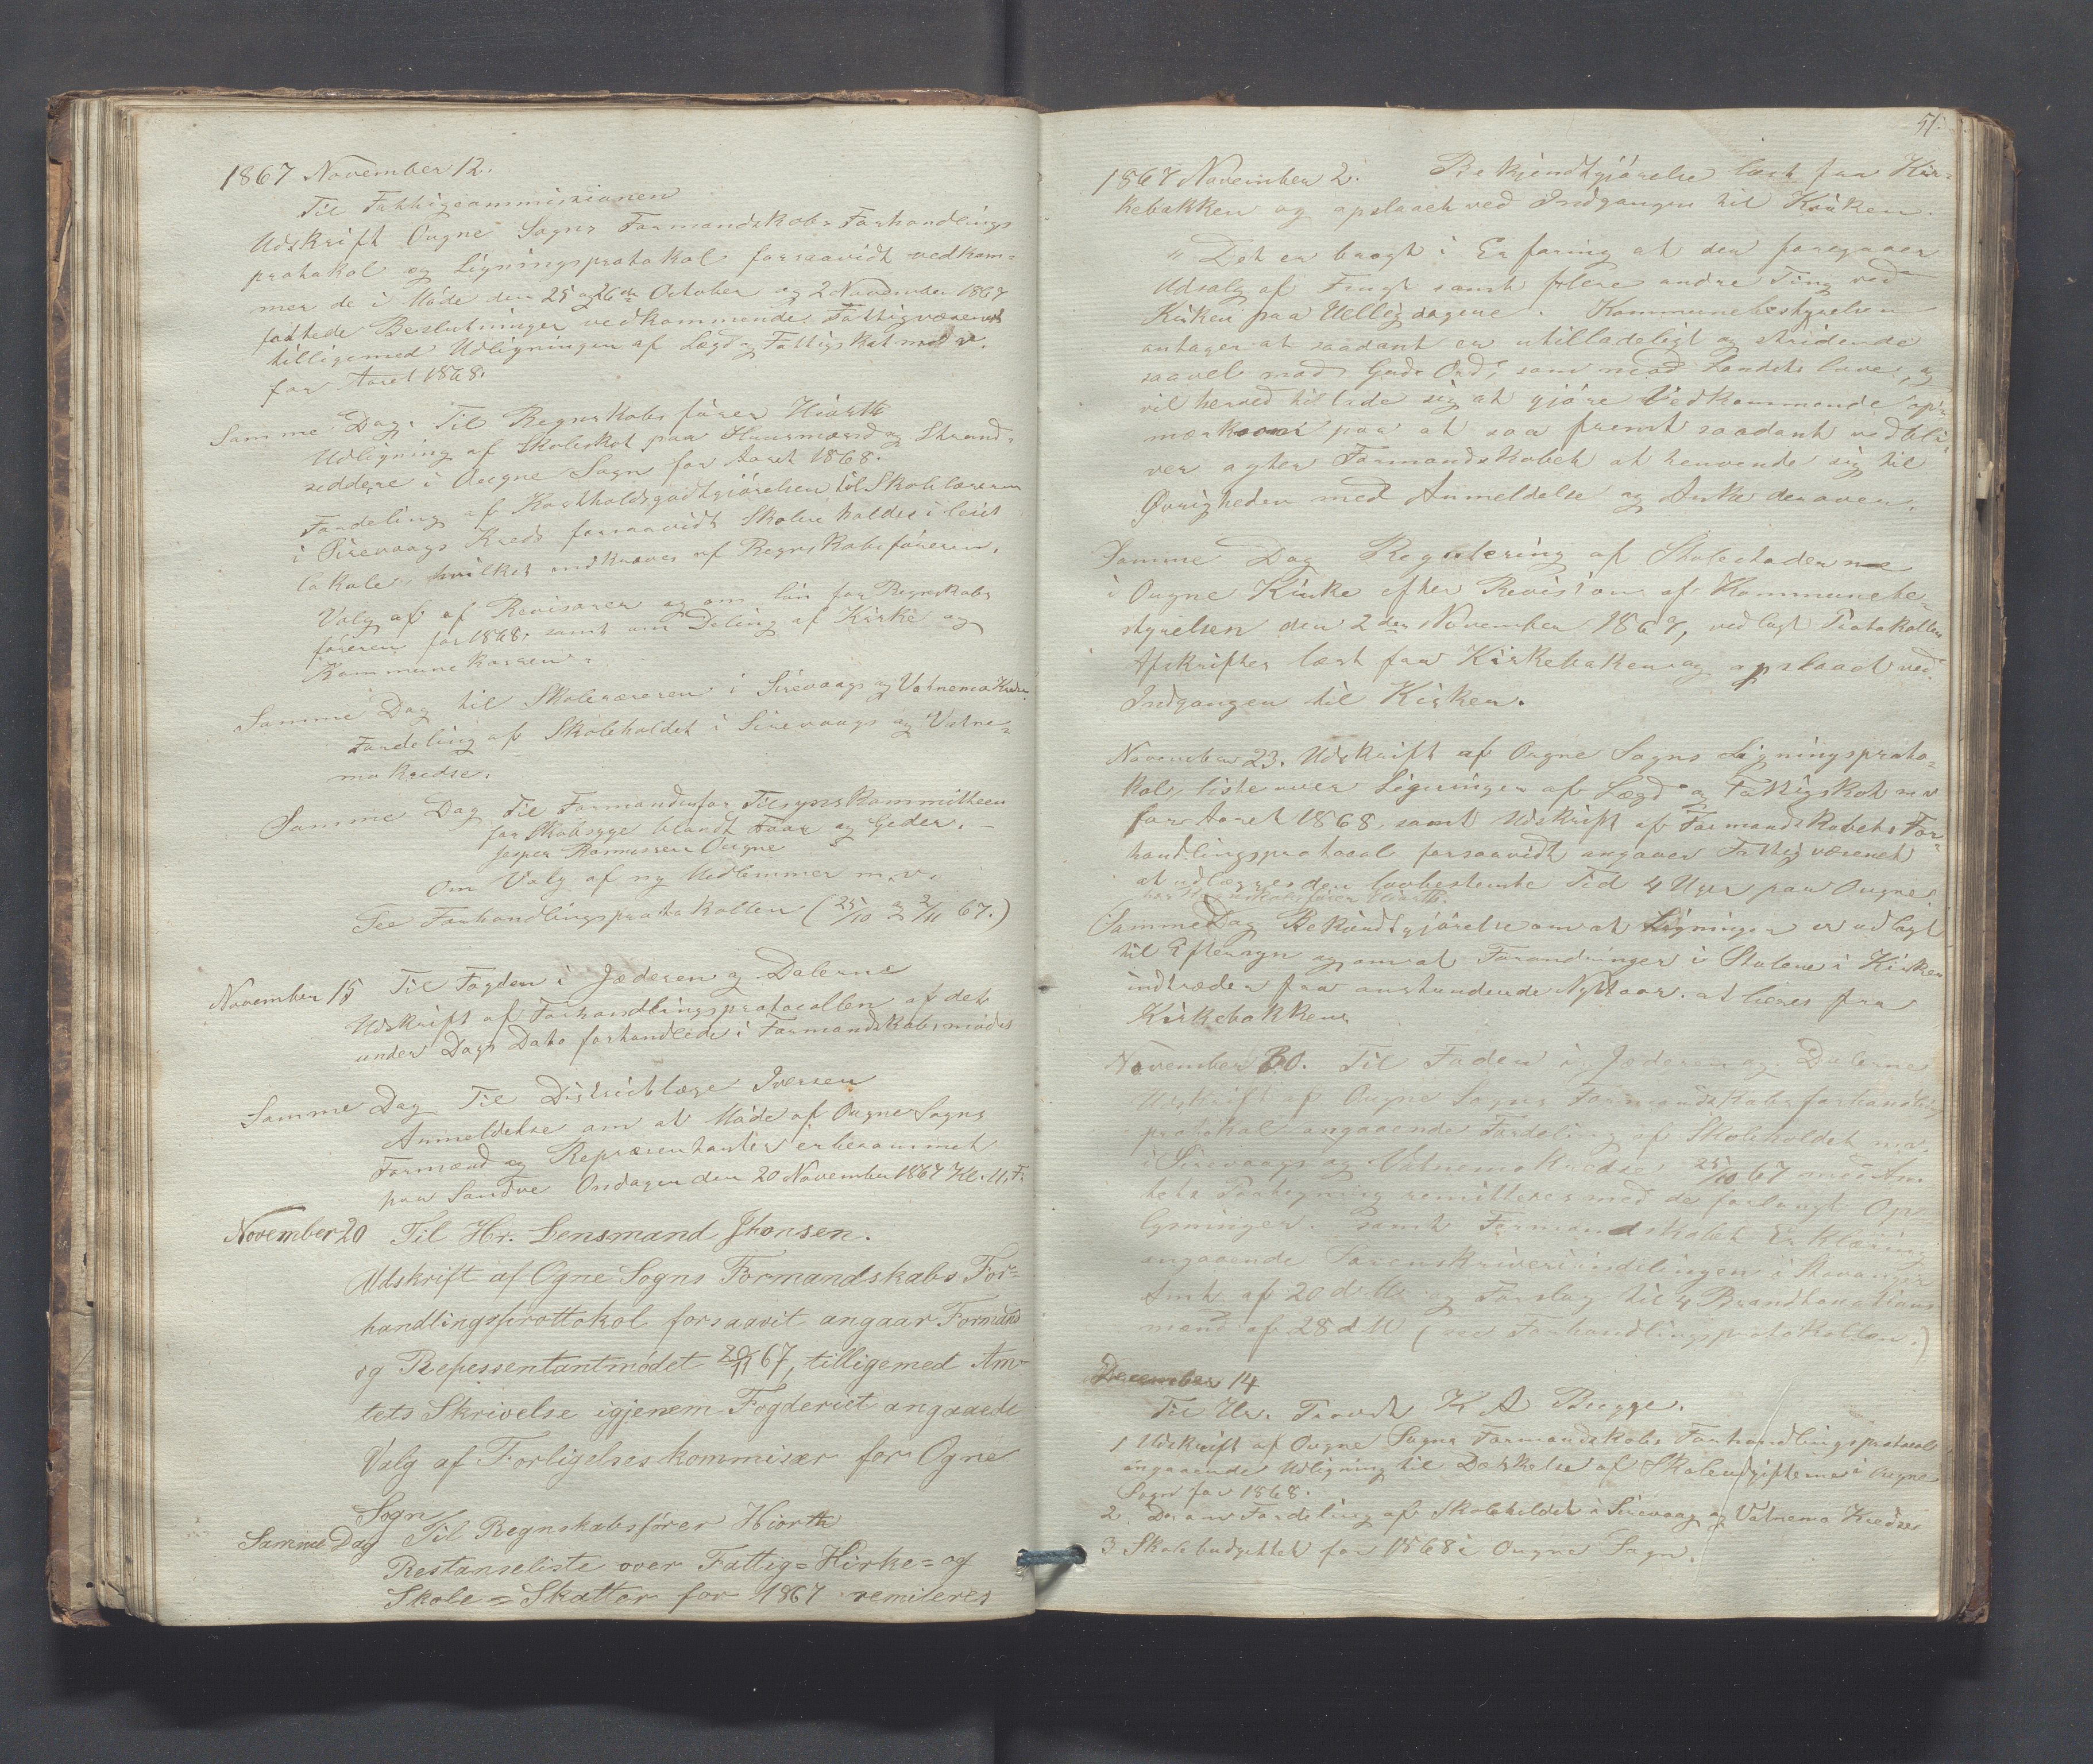 1867 November 12.
Til Fattigcommissionen
Udskrift Ougne Sogns Formandskabs Forhandlings
protokol og Ligningsprotokol forsaavidt vedkom=
mer de i Møde den 25 og 26de October og 2 November 1867
fattede Beslutninger vedkommende Fattigvæsenet
tilligemed Udligningen af Lægd og Fattigskat med v.
for Aaret 1868.
Samme Dag. Til Regnskabsfører Hiorth
Udligning af Skoleskat paa Huusmænd og Strand=
siddere i Ougne Sogn for Aaret 1868.
Fordeling af Kostholdsgodtgjørelsen til Skolelæreren
i Sirevaags Kreds forsaavidt Skolen holdes i leiet
lokale, hvilket indkræves af Regnskabsføreren.
Valg af af Revisorer og om løn for Regnskabs
føreren for 1868. samt om Deling af Kirke og
Kommunekassen.
Samme Dag til Skolelæreren i Sirevaags og Vatnemo Kredse
Fordeling af Skoleholdet i Sirevaags og Vatne=
mo Kredse.
Samme Dag Til Formanden for Tilsynskommitteen
for Skabsyge blandt Faar og Geder.
Jesper Rasmussen Ougne
Om Valg af ny Medlemmer m.v.
See Forhandlingsprotokollen (25/10 og 2/11 67.)
November 15 Til Fogden i Jæderen og Dalerne
Udskrift af Forhandlingsprotocollen af det
under Dags Dato forhandlede i Formandskabsmødet
Samme Dag Til Districtslæge Iversen
Anmeldelse om at Møde af Ougne Sogns
Formænd og Repræsentanter er berammet
paa Sandve Onsdagen den 20 November 1867 Kl. 11. F.
November 20 Til Hr. Lensmand Thorsen.
Udskrift af Ogne Sogns Formandskabs For=
handlingsprottokol forsaavit angaar Formands
og Repessentantmødet 20/11 67, tilligemed Am=
tets Skrivelse igjenem Fogderiet angaaede
Valg af Forligelseskommisær for Ogne
Sogn
Samme Dag Til Regnskabsfører Hiorth
Restanseliste over Fattig= Kirke= og
Skole= Skatter for 1867 remiteres
51.
1867 November 2. Bekjendtgjørelse læst fra Kir=
kebakken og opslaaet ved Indgangen til Kirken.
"Det er bragt i Erfaring at der foregaaer
Udsalg af Frugt samt flere andre Ting ved
Kirken paa Helligdagene. Kommunebestyrelsen
antager at saadant er utilladeligt og stridende
saavel mod Guds Ord, som mod Landets Love, og
vil herved tillade sig at gjøre Vedkommende op=
mærksom paa at saa fremt saadant vedbli=
ver agter Formandskabet at henvende sig til
Øvrigheden med Anmeldelse og Anke derover.
Samme Dag Regulering af Stolestaderne
i Ougne Kirke efter Revision af Kommunebe=
styrelsen den 2den November 1867, vedlagt Protokollen
Afskrifter læst fra Kirkebaken og opslaaet ved
Indgangen til Kirken.
November 23. Udskrift af Ougne Sogns Ligningsproto=
kol, liste over Ligningen af Lægd og Fattigskat m v
for Aaret 1868, samt Udskrift af Formandskabets For=
handlingsprotocol forsaavidt angaaer Fattigvæsenet
at udlægges den lovbestemte Tid 4 Uger paa Ougne
hos Regnskabsfører Hiorth.
Samme Dag Bekiendtgjørelse om at Ligningen er udlagt
til Eftersyn og om at Forandringer i Stolene i Kirken
indtræder fra anstundende Nyttaar. at læres fra
Kirkebakken
November 30. Til Foden i Jæderen og Dalerne
Udskrift af Ougne Sogns Formandskabsforhandling
protokol angaaende Fordeling af Skoleholdet m.v.
i Sirevaags og Vatnemo Kredse 25/10 67 med Am
tets Paategning remitteres med de forlangte Op
lysninger. samt Formandskabets Erklæring
angaaende Sorenskriveriindelingen i Stavanger
Amt af 20 d M og Forslag til 4 Brandtaxations
mænd af 28 d M (see Forhandlingsprotokollen.)
December 14
Til Hr. Provst K A Bugge.
1 Udskrift af Ougne Sogns Formandskabs Forhandlingsprotocol
angaaende Udligning til Dækkelse af Skoleudgifterne i Ougne
Sogn for 1868.
2. Do om Fordeling af Skoleholdet i Sirevaag og Vatnemo Kredse
3 Skolebudgettet for 1868 i Ougne Sogn.